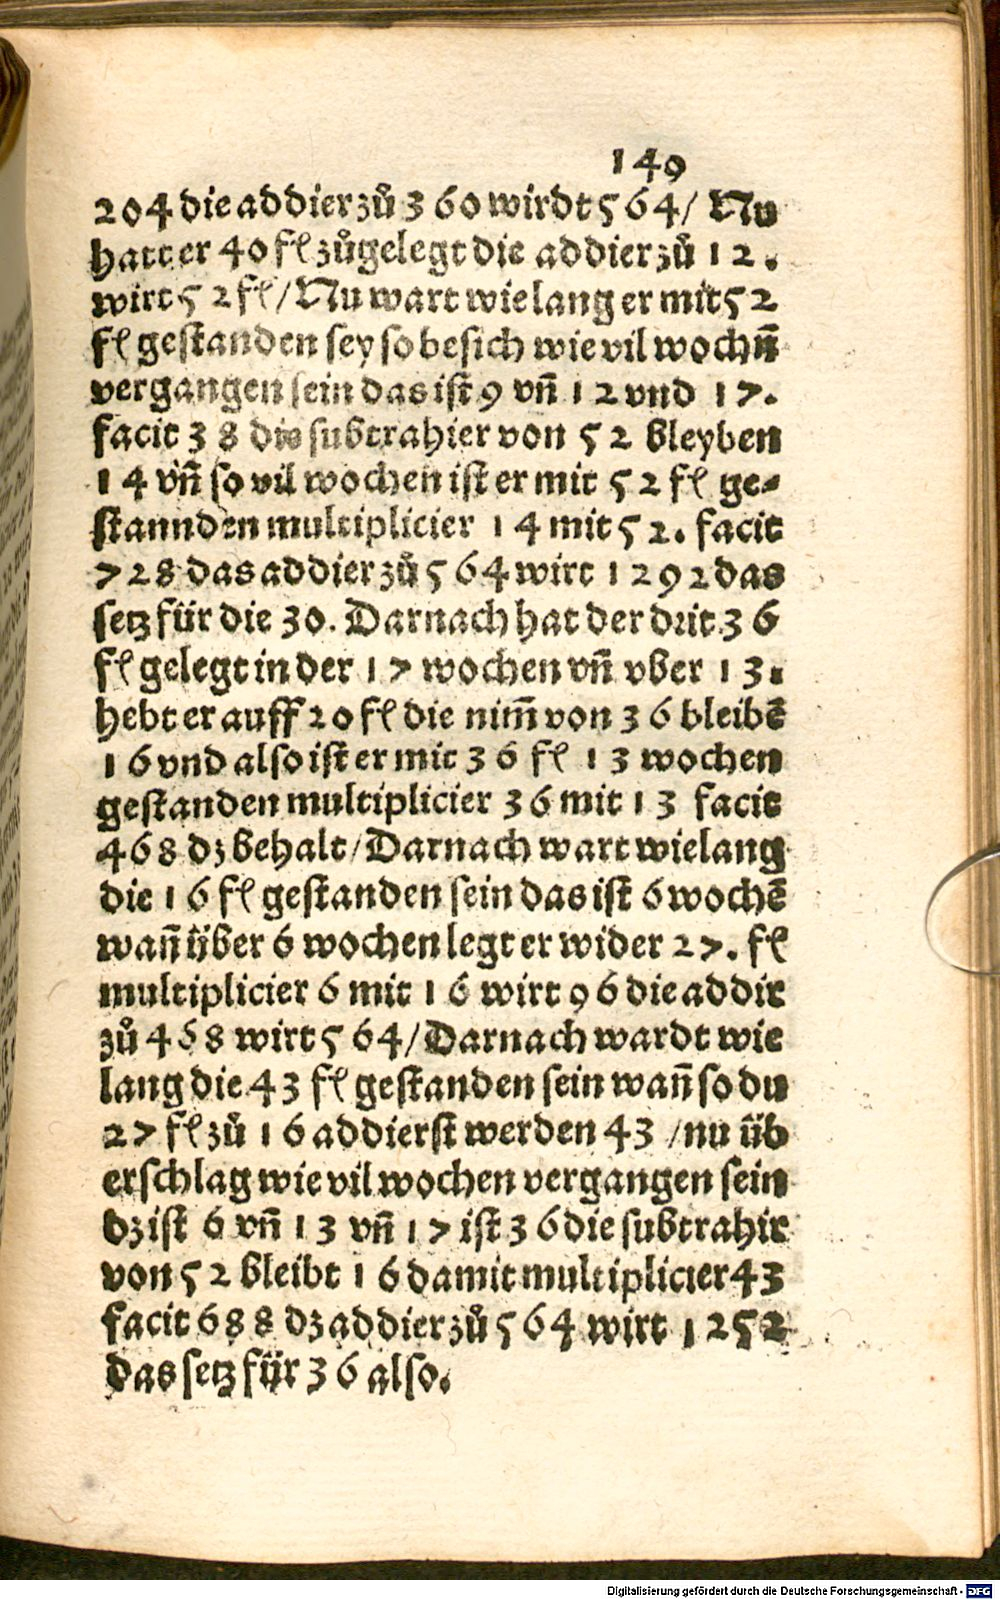 149
204 die addier zů 360 wirdt 564/ Nu
hatt er 40 fl zůgelegt die addier zů 12.
wirt 52 fl/ Nu wart wie lang er mit 52
fl gestanden sey so besich wie vil wochñ
vergangen sein das ist 9 vñ 12 vnd 17.
facit 38 die subtrahier von 52 bleyben
14 vñ so vil wochen ist er mit 52 fl ge-
stannden multiplicier 14 mit 52. facit
728 das addier zů 564 wirt 1292 das
setz für die 30. Darnach hat der drit 36
fl gelegt in der 17 wochen vñ vber 13.
hebt er auff 20 fl die nim̃ von 36 bleibẽ
16 vnd also ist er mit 36 fl 13 wochen
gestanden multiplicier 36 mit 13 facit
468 dz behalt/ Darnach wart wielang
die 16 fl gestanden sein das ist 6 wochẽ
wañ über 6 wochen legt er wider 27. fl
multiplicier 6 mit 16 wirt 96 die addir
zů 468 wirt 564/ Darnach wardt wie
lang die 43 fl gestanden sein wañ so du
27 fl zů 16 addierst werden 43 /nu üb
erschlag wie vil wochen vergangen sein
dz ist 6 vñ 13 vñ 17 ist 36 die subtrahir
von 52 bleibt 16 damit multiplicier 43
facit 688 dz addier zů 564 wirt 1252
das setz für 36 also.
Digitalisierung gefördert durch die Deutsche Forschungsgemeinschaft - DFG